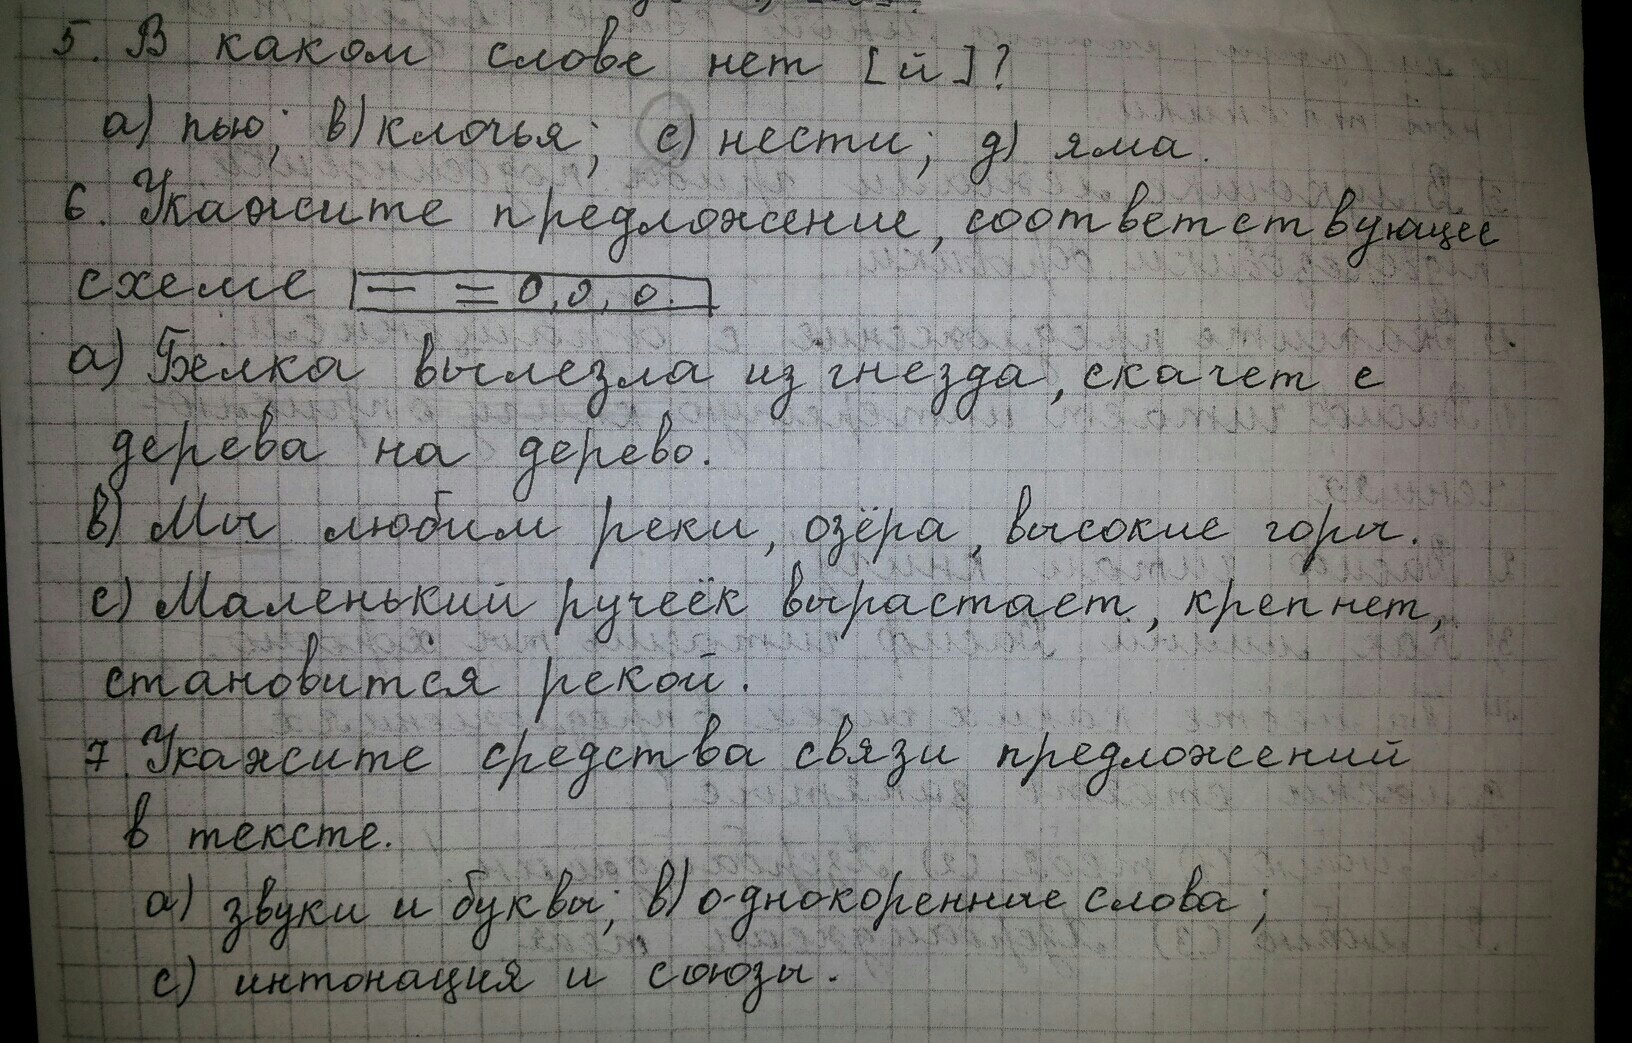 5. В каком слове нет [й]?
а) пью; в) клочья; с) нести; д) яма.
6. Укажите предложение, соответствующее
схеме [— = О, О, О.]
а) Белка вылезла из гнезда, скачет с
дерева на дерево.
в) Мы любим реки, озёра, высокие горы.
с) Маленький ручеёк вырастает, крепнет,
становится рекой.
7 Укажите средства связи предложений
в тексте.
а) звуки и буквы; в) однокоренные слова;
с) интонация и союзы.